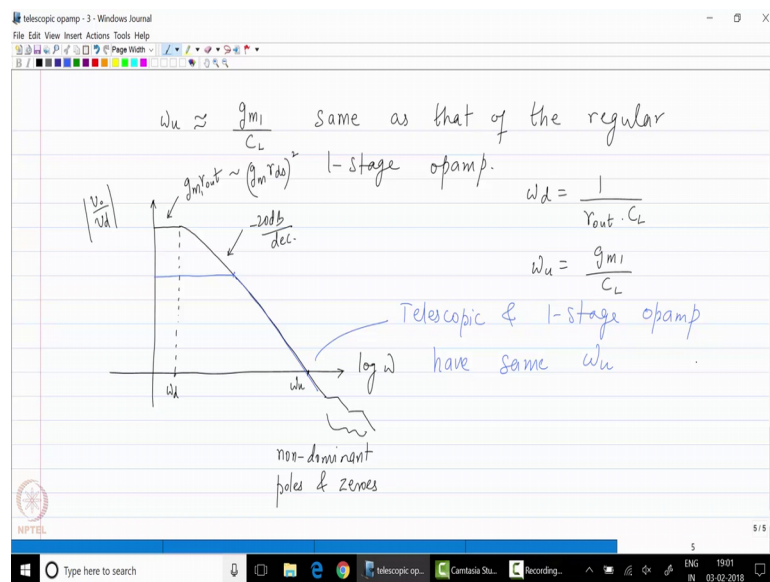 telescopic opamp - 3 - Windows Journal
File Edit View Insert Actions Tools Help
Page Width
B I
ωu ≈ gm1 / CL same as that of the regular
1-stage opamp.
gm1 rout ~ (gm rds)²
|vo / vd|
-20db / dec.
ωd = 1 / rout . CL
ωu = gm1 / CL
Telescopic & 1-stage opamp
have same ωu
log ω
ωd
ωu
non-dominant
poles & zeroes
NPTEL
5/5
5
Type here to search
telescopic op...
Camtasia Stu...
Recording...
ENG
IN
19:01
03-02-2018